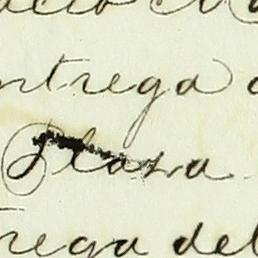 ntrega
Plaza
rega del